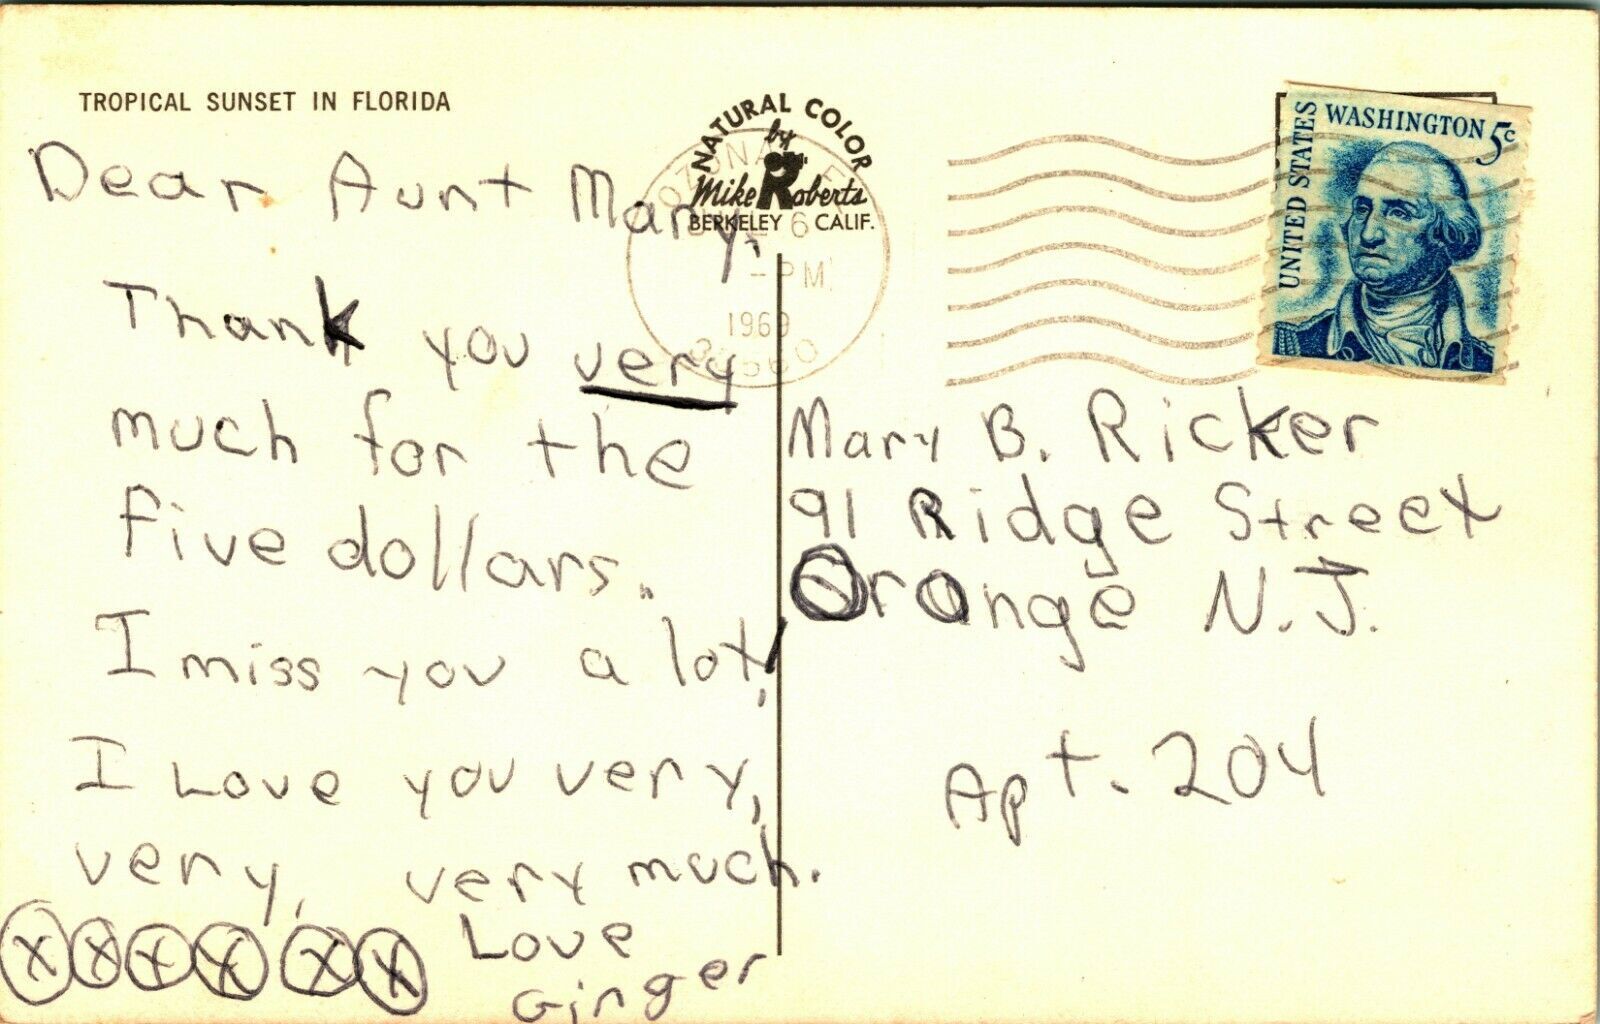 TROPICAL SUNSET IN FLORIDA
NATURAL COLOR
by
Mike Roberts
BERKELEY CALIF.
OZONA
6
-PM
1969
UNITED STATES
WASHINGTON 5c
Dear Aunt Mary,
Thank you very
much for the
five dollars.
I miss you a lot,
I Love you very,
very, very much.
XXXX XX Love
Ginger
Mary B. Ricker
91 Ridge Street
Orange N.J.
Apt. 204